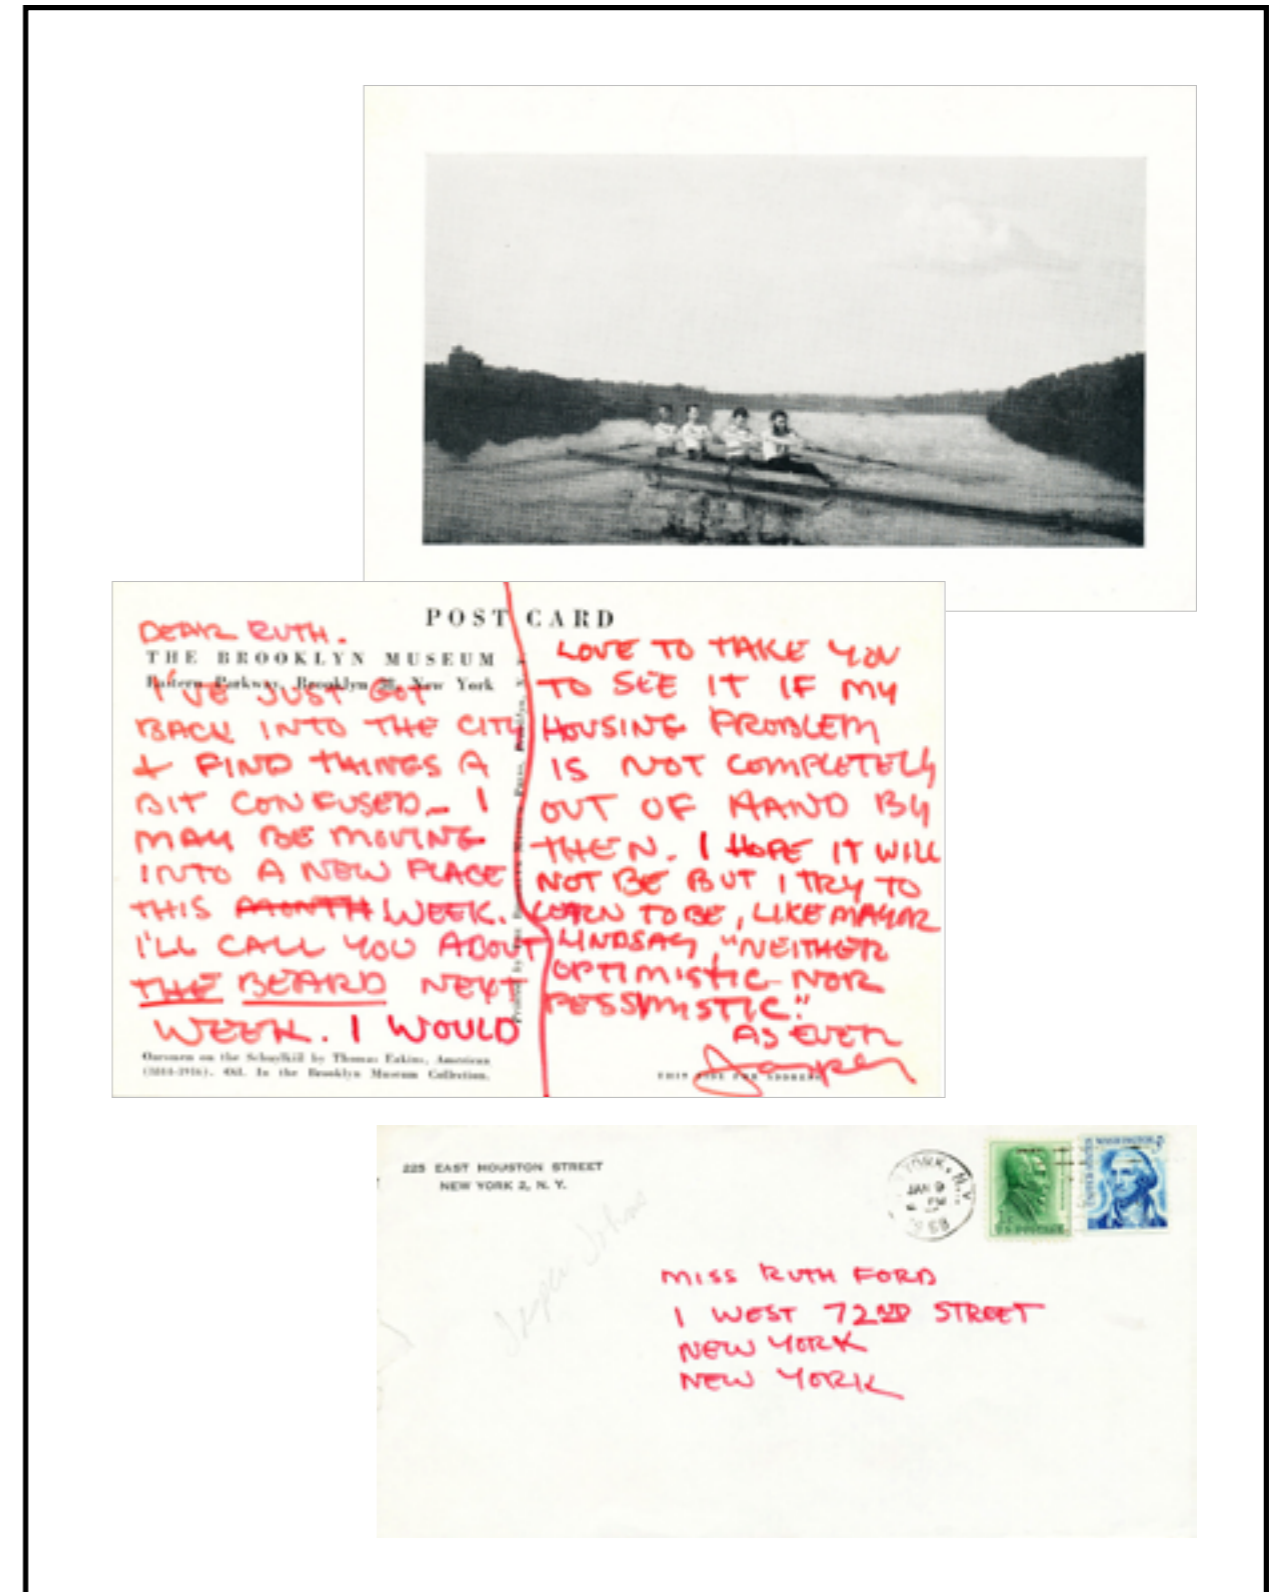 POST CARD
DEAR RUTH.
THE BROOKLYN MUSEUM
Eastern Parkway, Brooklyn 38, New York
I'VE JUST GOT
BACK INTO THE CITY
& FIND THINGS A
BIT CONFUSED_ I
MAY BE MOVING
INTO A NEW PLACE
THIS MONTH WEEK.
I'LL CALL YOU ABOUT
THE BEARD NEXT
WEEK. I WOULD
LOVE TO TAKE YOU
TO SEE IT IF MY
HOUSING PROBLEM
IS NOT COMPLETELY
OUT OF HAND BY
THEN. I HOPE IT WILL
NOT BE BUT I TRY TO
LEARN TO BE, LIKE MAYOR
LINDSAY, "NEITHER
OPTIMISTIC NOR
PESSIMISTIC."
AS EVER
Jasper
Oarsmen on the Schuylkill by Thomas Eakins, American
(1844-1916). Oil. In the Brooklyn Museum Collection.
THIS SIDE FOR ADDRESS
225 EAST HOUSTON STREET
NEW YORK 2, N. Y.
Jasper Johns
YORK, N.Y.
JAN 9
PM
68
U.S. POSTAGE
WASHINGTON 5
UNITED STATES
MISS RUTH FORD
1 WEST 72ND STREET
NEW YORK
NEW YORK